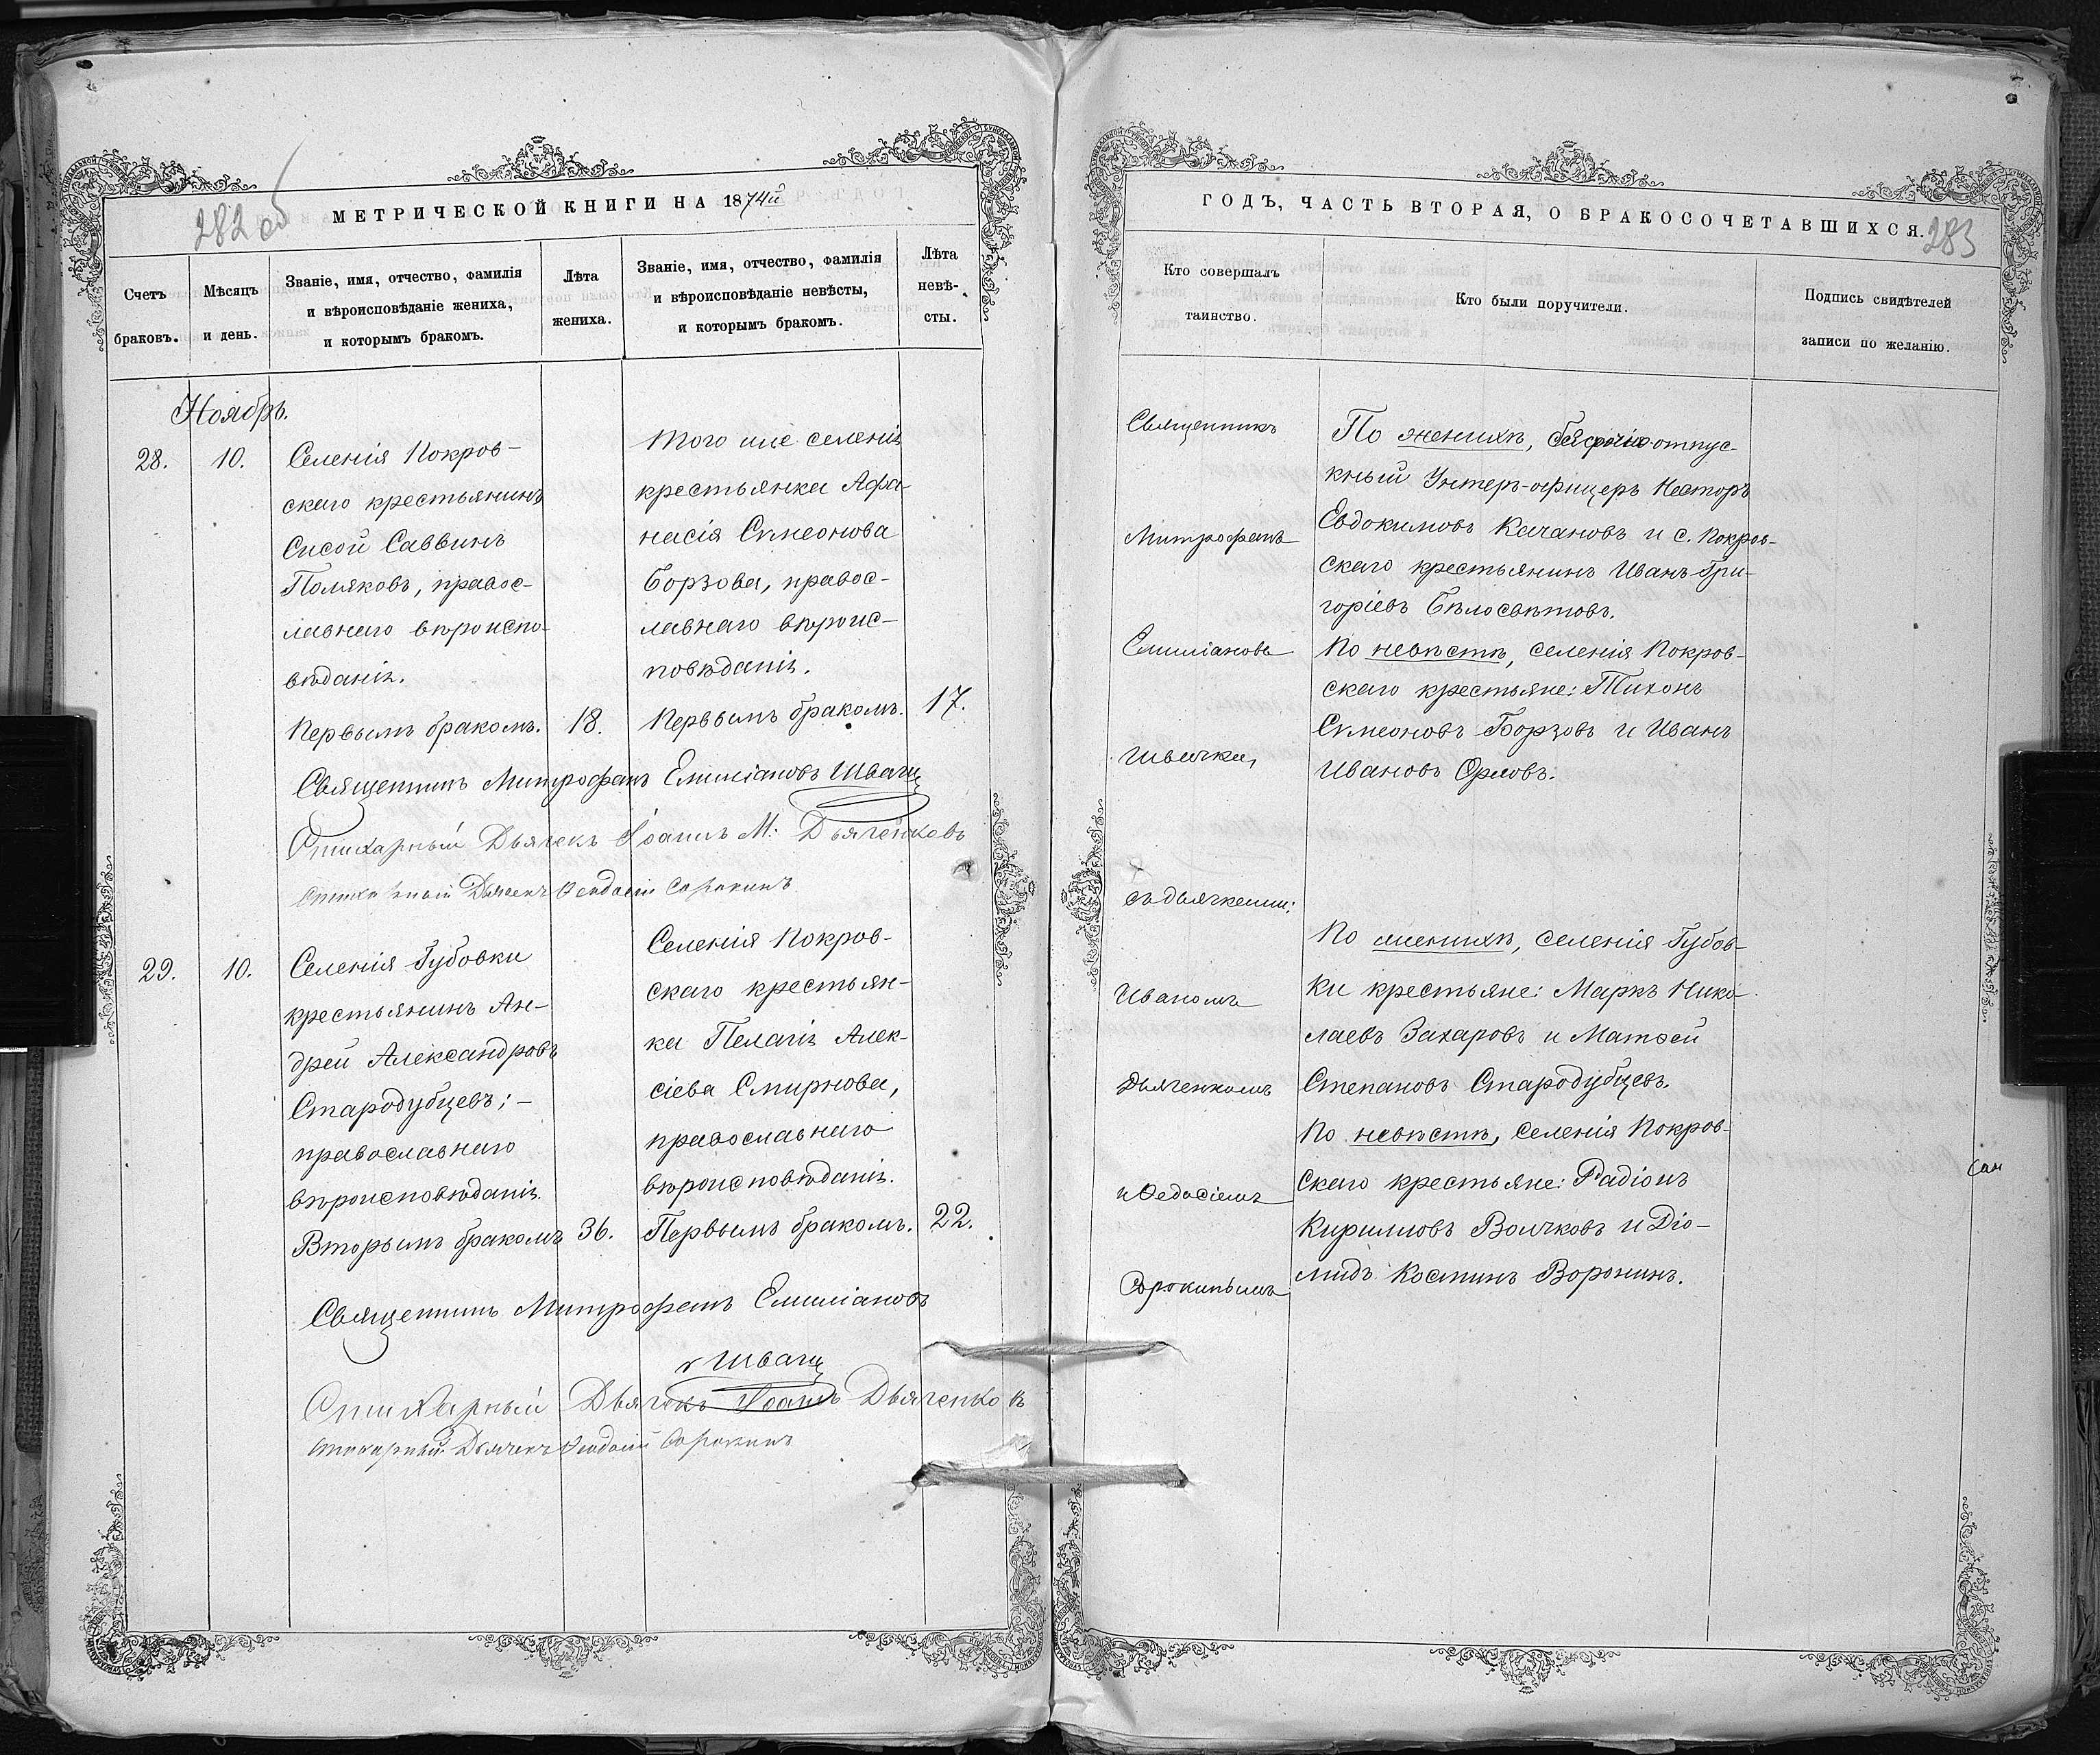 282 об
МЕТРИЧЕСКОЙ КНИГИ НА 1874й
Счетъ браковъ.
Мѣсяцъ и день.
Званіе, имя, отчество, фамилія
и вѣроисповѣданіе жениха,
и которымъ бракомъ.
Лѣта
жениха.
Званіе, имя, отчество, фамилія
и вѣроисповѣданіе невѣсты,
и которымъ бракомъ.
Лѣта
невѣ-
сты.
Ноябрь.
28.
10.
Селенія Покров-
скаго крестьянинъ
Сисой Саввинъ
Поляковъ, правос-
лавнаго вѣроиспо-
вѣданія.
Первымъ бракомъ.
18.
Того же селенія
крестьянка Афа-
насія Симеонова
Борзова, правос-
лавнаго вѣроис-
повѣданія.
Первымъ бракомъ.
17.
Священникъ Митрофанъ Емиліановъ Швачка
Стихарный Дьячекъ Іоаннъ М. Дьяченковъ
Стихарный Дьячекъ Ѳеодосій Сорокинъ
29.
10.
Селенія Губовки
крестьянинъ Ан-
дрей Александровъ
Стародубцевъ; -
православнаго
вѣроисповѣданія.
Вторымъ бракомъ
36.
Селенія Покров-
скаго крестьян-
ка Пелагія Алек-
сіева Смирнова,
православнаго
вѣроисповѣданія.
Первымъ бракомъ.
22.
Священникъ Митрофанъ Емиліановъ
Швачка
Стихарный Дьячокъ Іоаннъ Дьяченковъ
Стихарный Дьячекъ Ѳеодосій Сорокинъ
ГОДЪ, ЧАСТЬ ВТОРАЯ, О БРАКОСОЧЕТАВШИХСЯ.
283
Кто совершалъ
таинство.
Кто были поручители.
Подпись свидѣтелей
записи по желанію.
Священникъ
Митрофанъ
Емиліановъ
Швачка,
съ дьячками:
Иваномъ
Дьяченкомъ
и Ѳедосіемъ
Сорокинымъ
По женихѣ, безсрочно-отпус-
кный Унтеръ-офицеръ Несторъ
Евдокимовъ Качановъ и с. Покров-
скаго крестьянинъ Иванъ Гри-
горіевъ Бѣлосвѣтовъ.
По невѣстѣ, селенія Покров-
скаго крестьяне: Тихонъ
Симеоновъ Борзовъ и Иванъ
Ивановъ Орловъ.
По женихѣ, селенія Губов-
ки крестьяне: Маркъ Нико-
лаевъ Захаровъ и Матѳей
Степановъ Стародубцевъ.
По невѣстѣ, селенія Покров-
скаго крестьяне: Радіонъ
Кириловъ Волчковъ и Діо-
мидъ Косминъ Воронинъ.